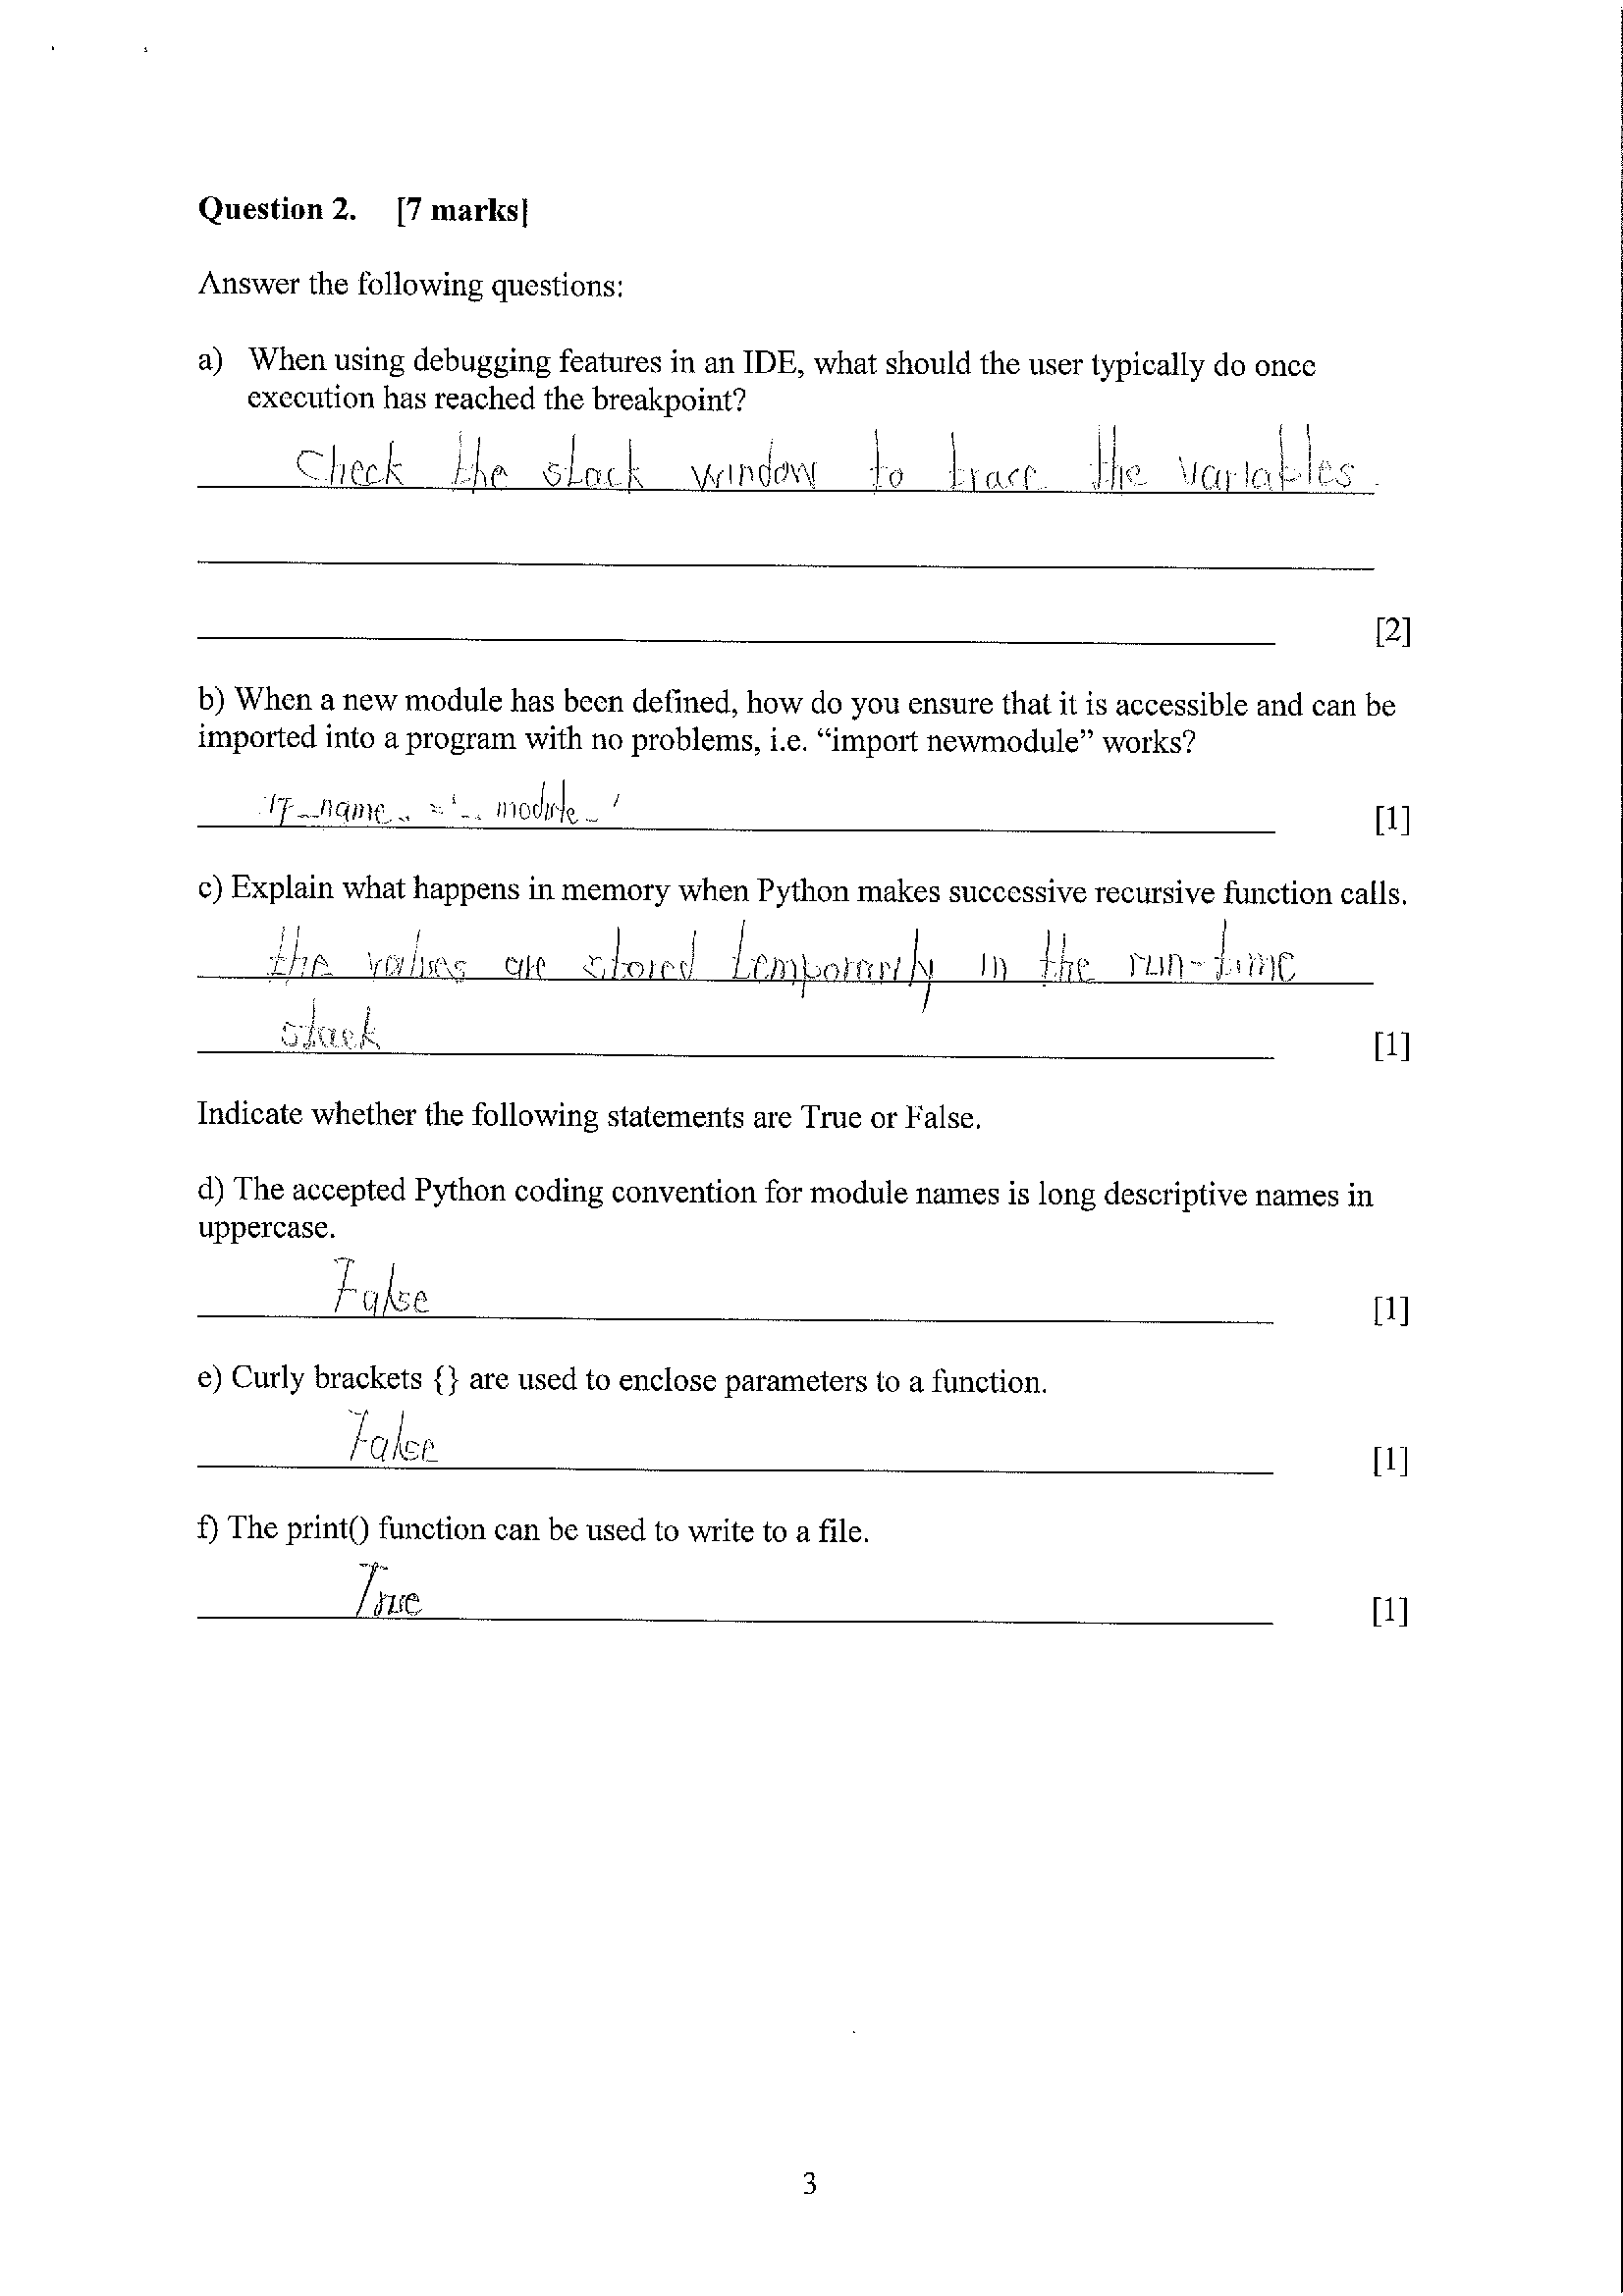 Question 2. [7 marks]
Answer the following questions:
a) When using debugging features in an IDE, what should the user typically do once
execution has reached the breakpoint?
Check the stack window to trace the variables.
[2]
b) When a new module has been defined, how do you ensure that it is accessible and can be
imported into a program with no problems, i.e. “import newmodule” works?
if __name__ = '__module_'
[1]
c) Explain what happens in memory when Python makes successive recursive function calls.
the values are stored temporarily in the run-time
stack
[1]
Indicate whether the following statements are True or False.
d) The accepted Python coding convention for module names is long descriptive names in
uppercase.
False
[1]
e) Curly brackets {} are used to enclose parameters to a function.
False
[1]
f) The print() function can be used to write to a file.
True
[1]
3